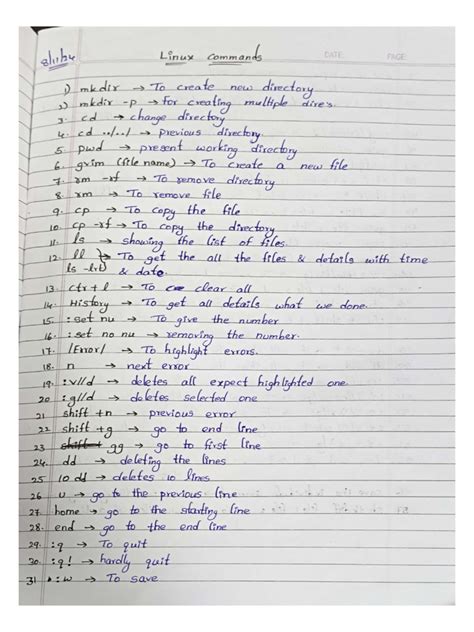 8/11/24 Linux Commands DATE: PAGE:
1) mkdir → To create new directory
2) mkdir -p → for creating multiple dire's.
3. cd → change directory
4. cd ../../ → previous directory.
5. pwd → present working directory
6. gvim (file name) → To create a new file
7. rm -rf → To remove directory.
8. rm → To remove file
9. cp → To copy the file
10. cp -rf → To copy the directory
11. ls → showing the list of files.
12. ll } → To get the all the files & details with time
ls -lrt } & date.
13. ctr + l → To clear all
14. History → To get all details what we done.
15. : set nu → To give the number
16. : set no nu → removing the number.
17. /Error/ → To highlight errors.
18. n → next error
19. :v//d → deletes all expect highlighted one.
20. :g//d → deletes selected one
21 shift +n → previous error
22. shift +g → go to end line
23 gg → go to first line
24. dd → deleting the lines
25 10 dd → deletes 10 lines
26 u → go to the previous line
27. home → go to the starting line
28. end → go to the end line
29. :q → To quit
30. :q! → hardly quit
31 :w → To save